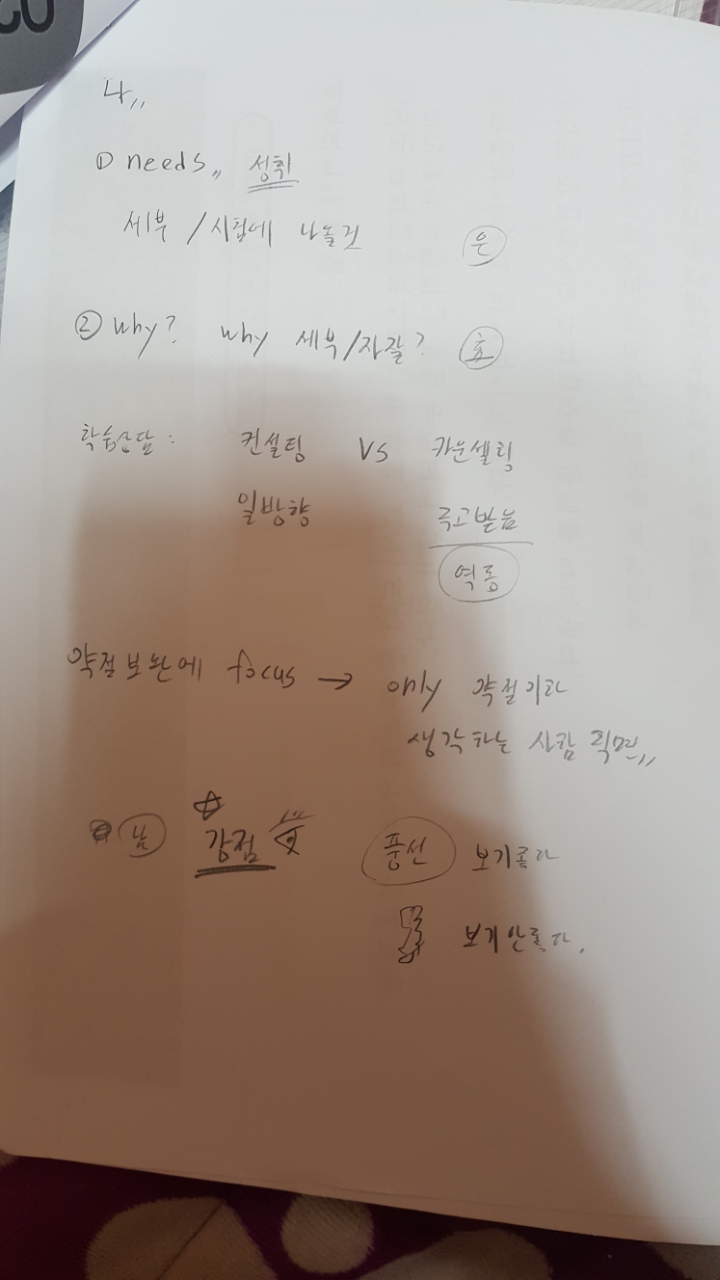 나,,
① needs,, 성취
세부 /시험에 나올것 은
② Why? why 세부/자잘? 효
학습상담: 컨설팅 VS 카운셀링
일방향 주고받음
역동
약점보완에 focus → only 약점이라
생각하는 사람 픽면,,
남 강점 풍선 보기좋다
보기안좋다.